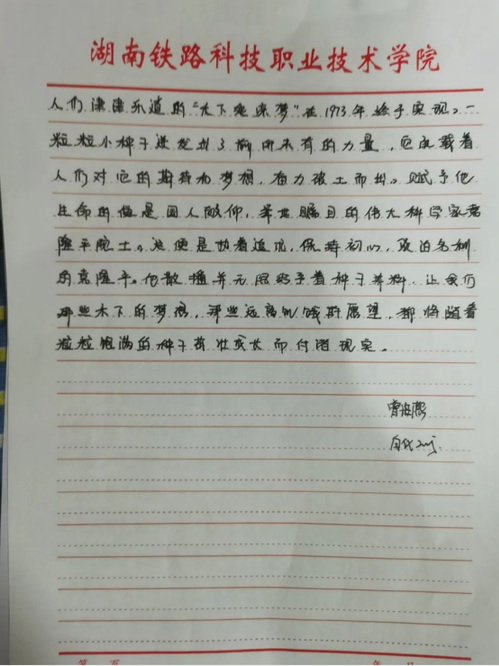 湖南铁路科技职业技术学院
人们津津乐道的“禾下乘凉梦”在1973年终于实现。一
粒粒小种子迸发出了前所未有的力量,它承载着
人们对它的期待和梦想,奋力破土而出。赋予它
生命的便是国人敬仰,举世瞩目的伟大科学家袁
隆平院士。这便是执着追求,保持初心,政治名利
的袁隆平。他散播并无照料着种子养料,让我们
那些禾下的梦想,那些远离饥饿的愿望,都将随着
粒粒饱满的种子茁壮成长而付诸现实。
曹